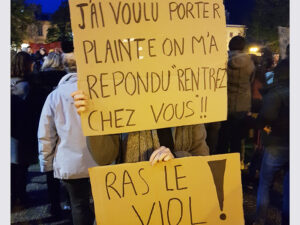 J'AI VOULU PORTER
PLAINTE ON M'A
REPONDU "RENTREZ
CHEZ VOUS"!!
RAS LE
VIOL !